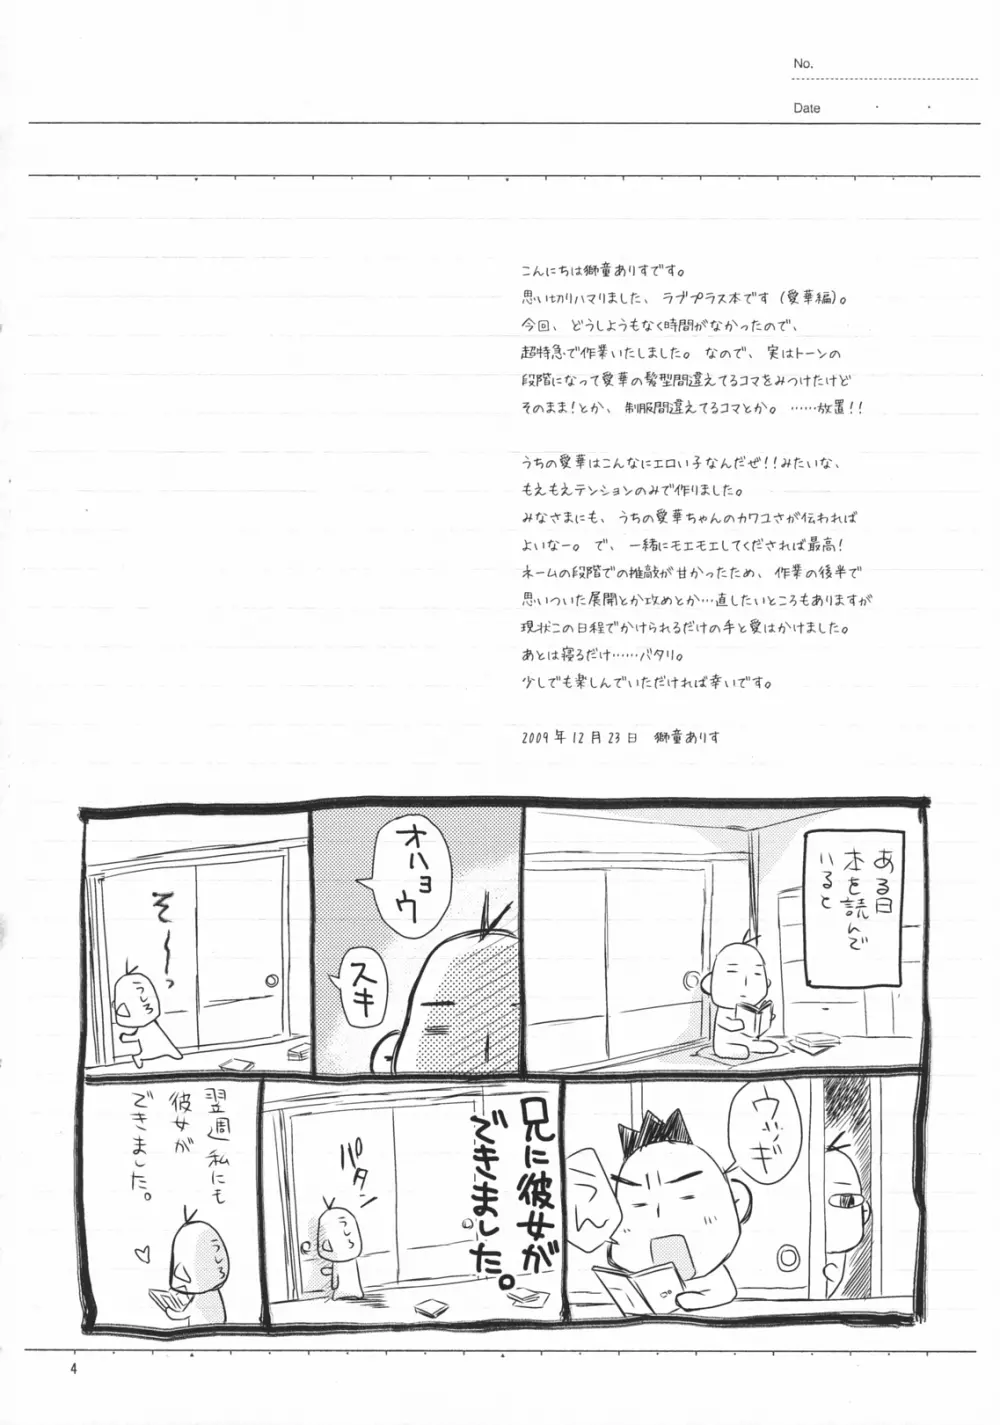 No.
Date
こんにちは獅童ありすです。
思い切りハマりました、ラブプラス本です(愛華編)。
今回、どうしようもなく時間がなかったので、
超特急で作業いたしました。なので、実はトーンの
段階になって愛華の髪型間違えてるコマをみつけたけど
そのまま!とか、制服間違えてるコマとか。……放置!!
うちの愛華はこんなにエロい子なんだぜ!!みたいな、
もえもえテンションのみで作りました。
みなさまにも、うちの愛華ちゃんのカワユさが伝われば
よいなー。で、一緒にモエモエしてくだされば最高!
ネームの段階での推敲が甘かったため、作業の後半で
思いついた展開とか攻めとか…直したいところもありますが
現状この日程でかけられるだけの手と愛はかけました。
あとは寝るだけ……バタリ。
少しでも楽しんでいただければ幸いです。
2009年12月23日 獅童ありす
ある日
本を読んで
いると
オハヨウ
スキ
そ〜っ
うしろ
ウッギ
うん
兄に彼女が
できました。
パタン
うしろ
翌週私にも
彼女が
できました。
うしろ
4